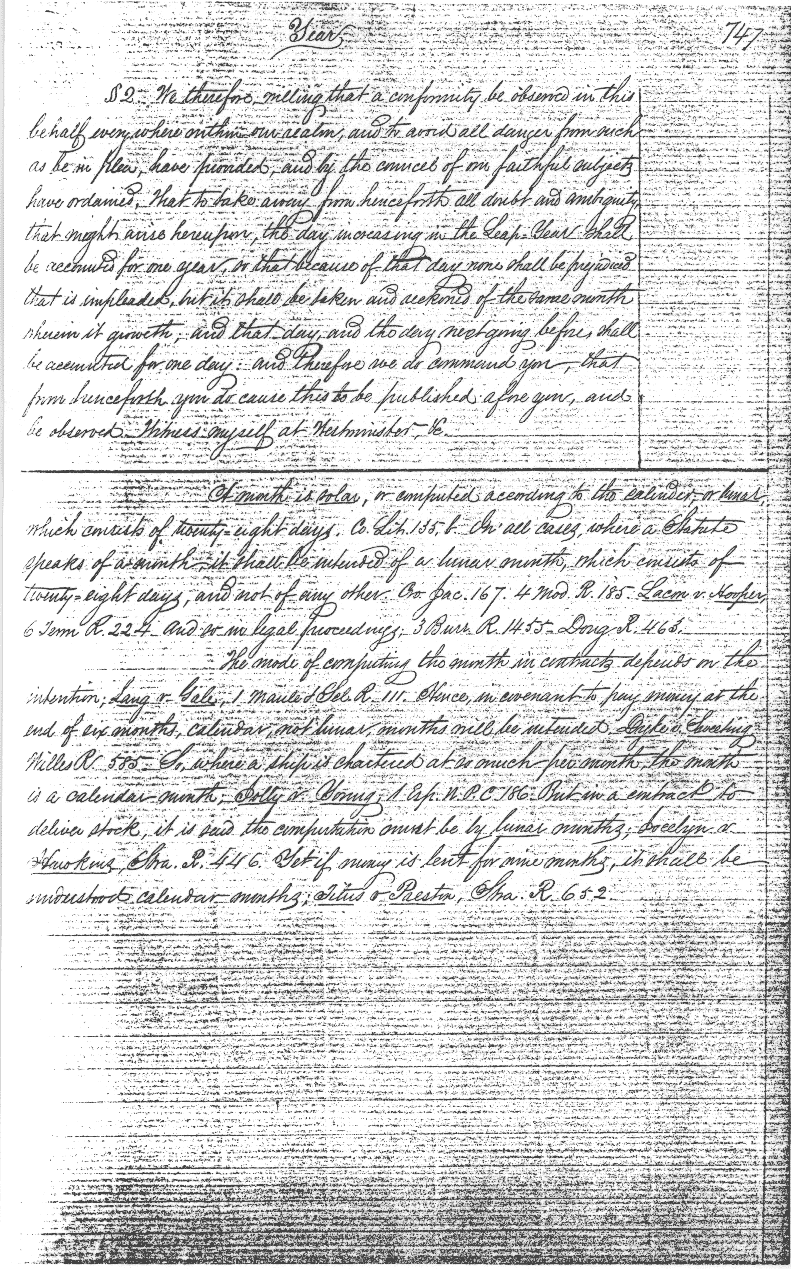 Year
747
§ 2. We therefore, willing that a conformity be observed in this
behalf every where within our realm, and to avoid all danger from such
as be in plea, have provided, and by the councel of our faithful subjects
have ordained, that to take away from henceforth all doubt and ambiguity
that meght arise hereupon, the day increasing in the Leap-Year shall
be accounted for one year, so that because of that day none shall be prejudiced
that is impleaded, but it shall be taken and reckoned of the same month
wherein it groweth; and that day, and the day next going before, shall
be accounted for one day: and therefore we do command you, that
from henceforth you do cause this to be published afore you, and
be observed. Witness myself at Westminster, &c.
A month is solar, or computed according to the calender, or lunar,
which consists of twenty-eight days. Co. Lit. 135, b. In all cases, where a Statute
speaks of a month it shall be intended of a lunar month, which consists of
twenty-eight days, and not of any other. Cro. Jac. 167. 4 Mod. R. 185. Lacon v. Hooper,
6 Term R. 224. And so in legal proceedings; 3 Burr. R. 1455. Doug. R. 463.
The mode of computing the month in contracts depends on the
intention; Lang v. Gale, 1 Maule & Sel. R. 111. Hence, in covenant to pay money at the
end of six months, calendar, not lunar, months will be intended. Dyke v. Sweeting
Willes R. 585. So, where a ship is chartered at so much per month, the month
is a calendar month; Jolly v. Young, 1 Esp. N. P. C 186. But in a contract to
deliver stock, it is said the computation must be by lunar months; Jocelyn v.
Hawkins, Stra. R. 446. Yet if money is lent for nine months, it shall be
understood calendar months; Titus v. Preston, Stra. R. 652.